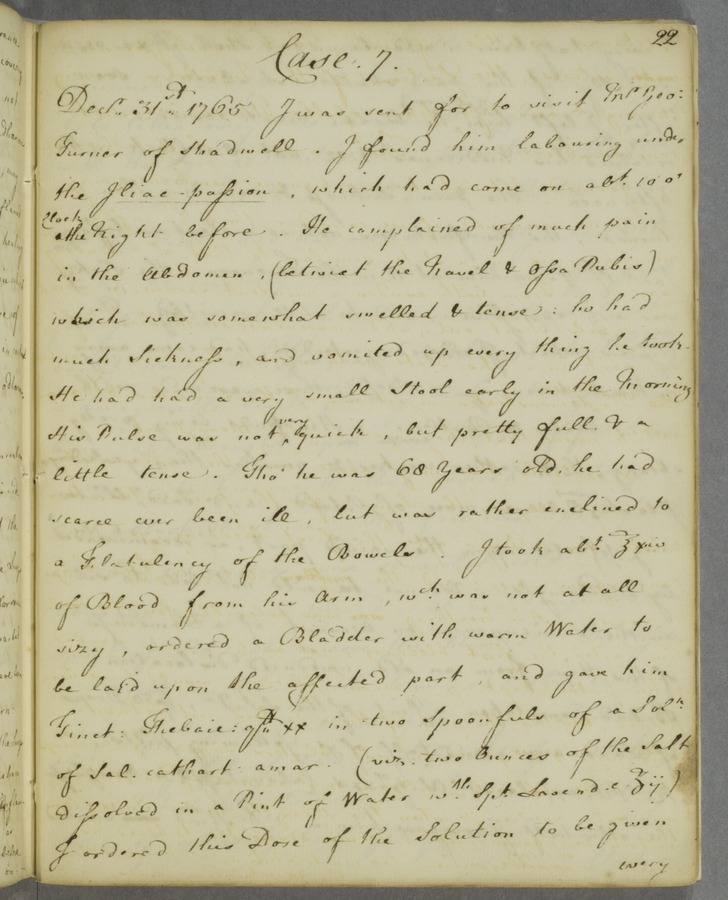 22
Case. 7.
Decr. 31st. 1765 I was sent for to visit Mr. Geo:
Turner of Shadwell. I found him labouring under
the Iliac-passion, which had come on abt. 10 o'
Clock
the Night before. He complained of much pain
in the Abdomen, (betwixt the Navel & Ossa Pubis)
which was somewhat swelled & tense: he had
much Sickness, and vomited up every thing he took.
He had had a very small Stool early in the Morning
His Pulse was not very quick, but pretty full & a
little tense. Tho' he was 68 Years old, he had
scarce ever been ill, but was rather enclined to
a Flatulency of the Bowels. I took abt. ℥xiv
of Blood from his Arm, wch. was not at all
sizy, ordered a Bladder with warm Water to
be laid upon the affected part, and gave him
Tinct: Thebaic: gtt xx in two Spoonfuls of a Soln.
of Sal. cathart. amar. (viz. two Ounces of the Salt
dissolved in a Pint of Water wth. Spt. Lavend: ℥ij)
I ordered this Dose of the Solution to be given
every